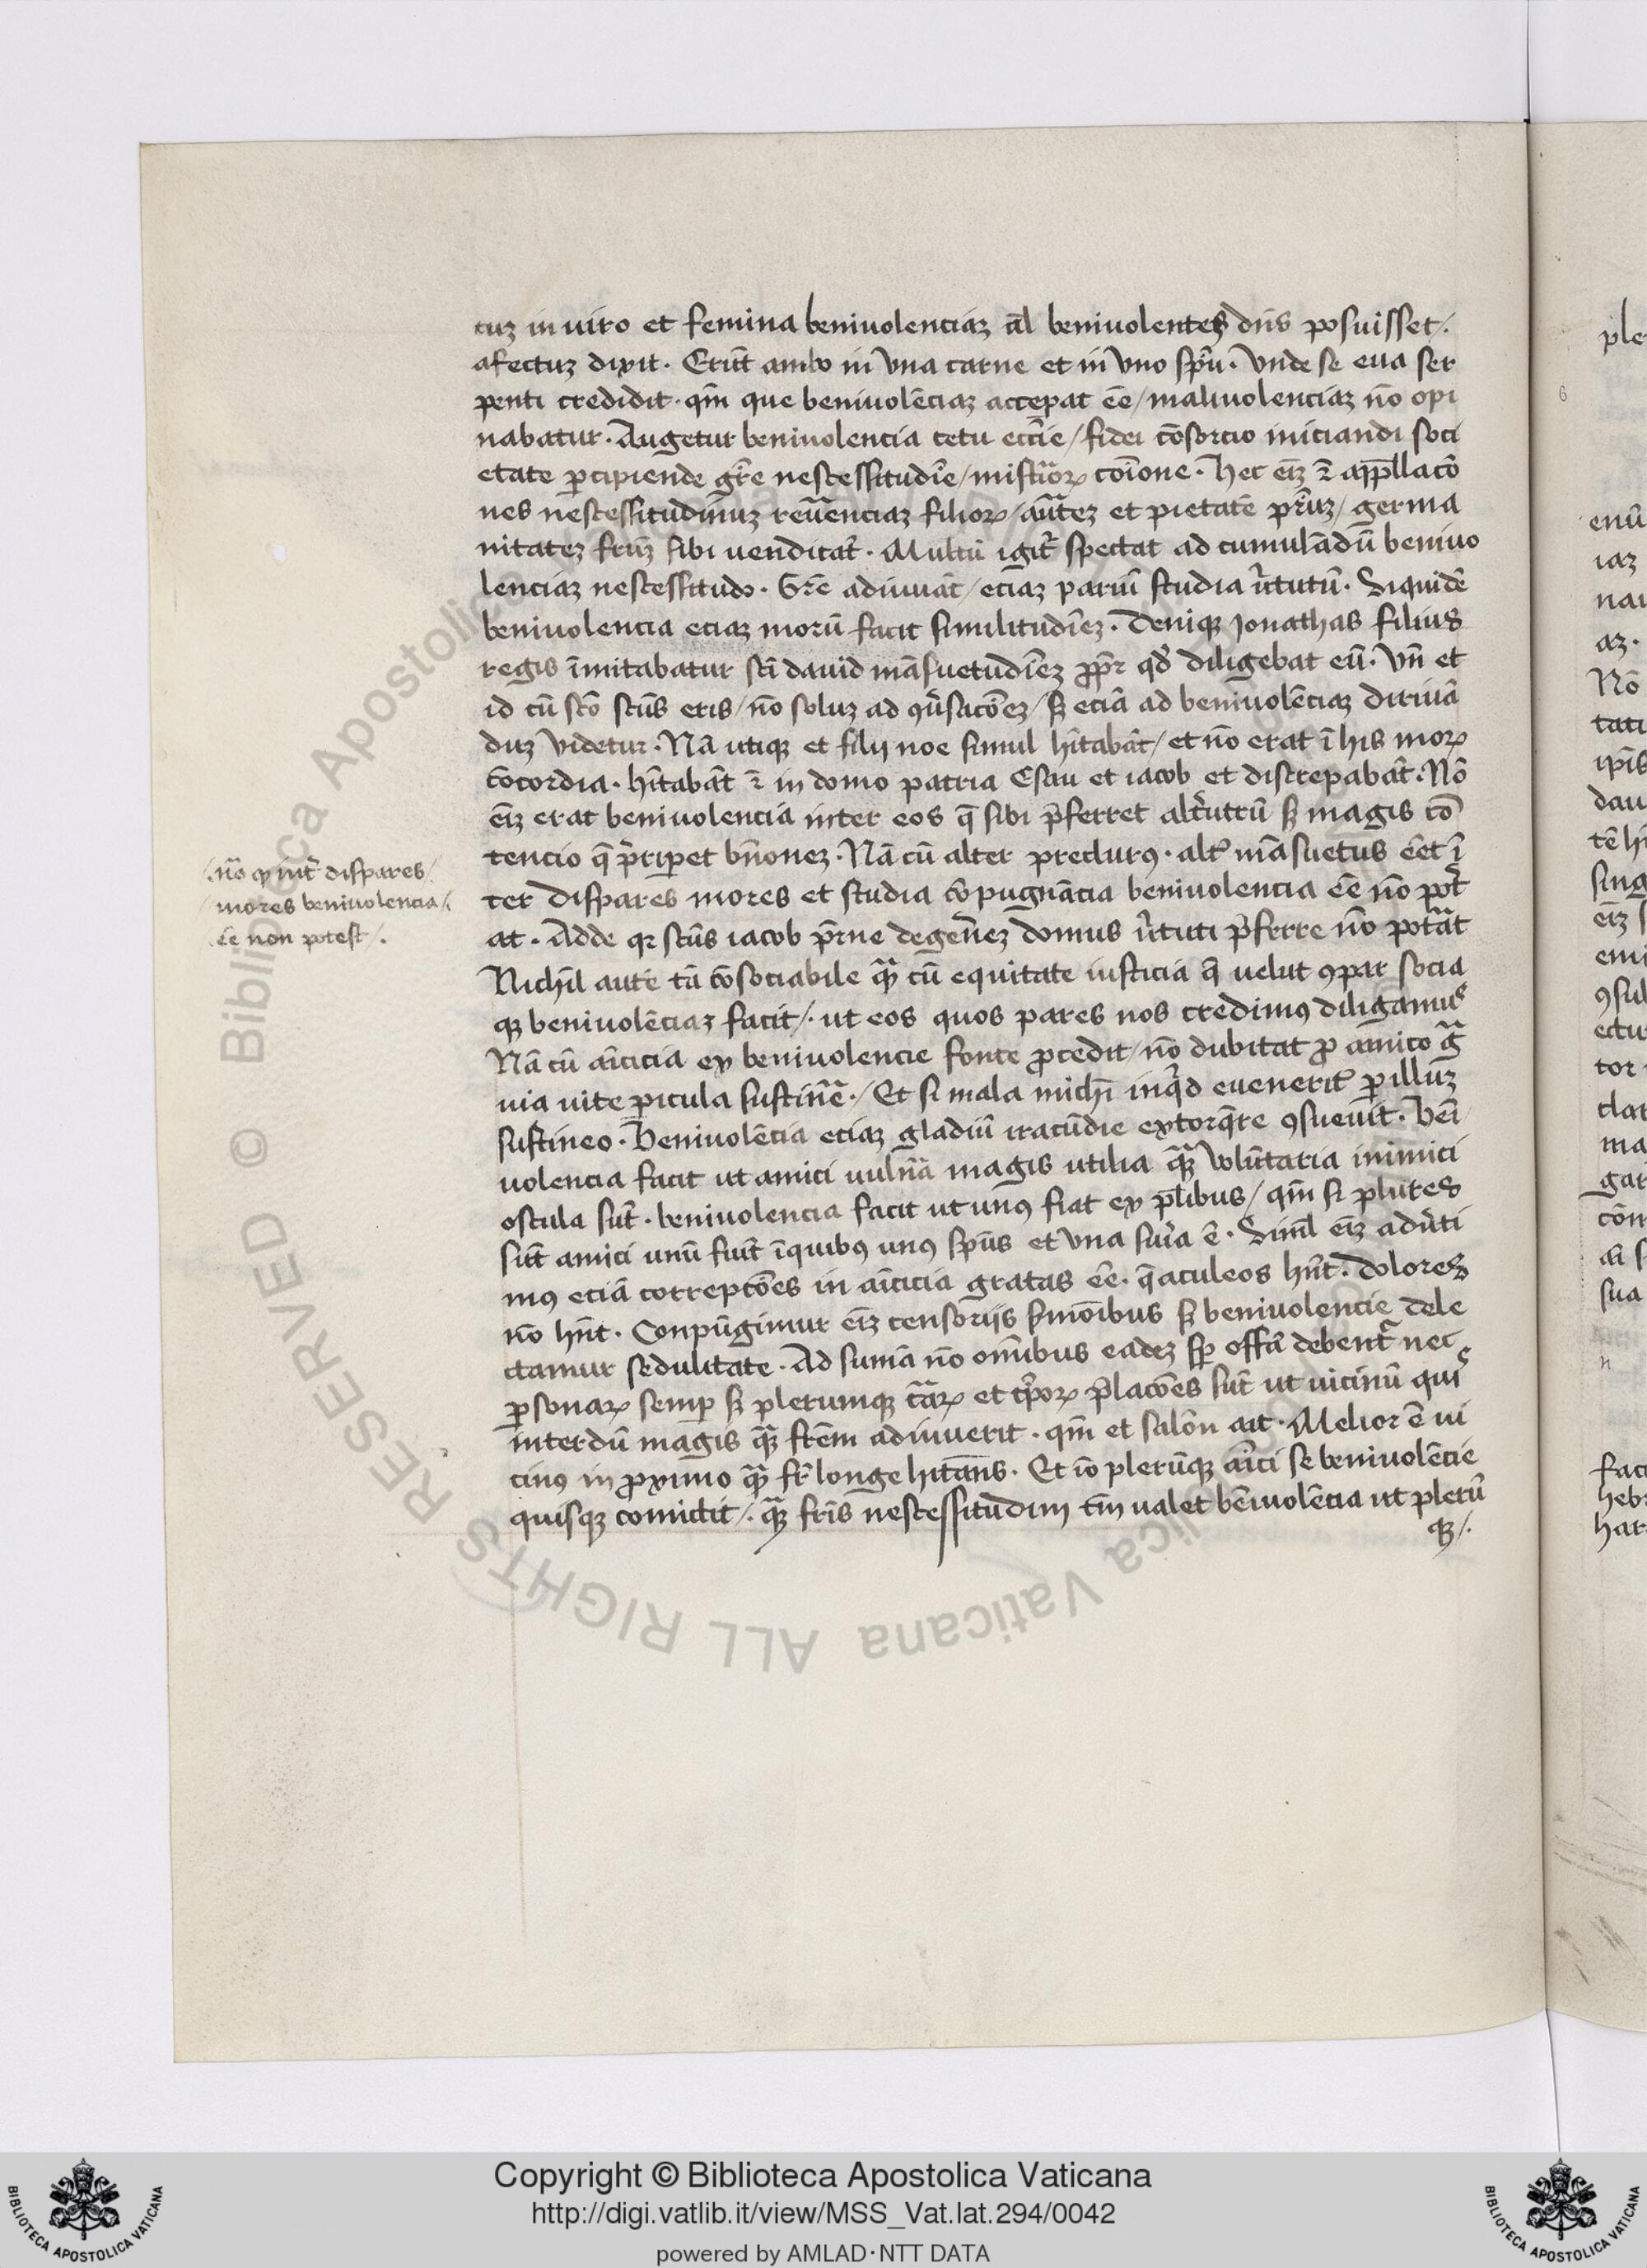 tuz in uiro et femina beniuolenciaz al̄ beniuolentes dn̄s posuisset/.
afectuz dixit. Erūt ambo in vna carne et in vno sp̄u. Vnde se eua ser
penti credidit. qm̄ que beniuolēciaz acceꝑat eē/maliuolenciaz nō opi
nabatur. Augetur beniuolencia cetu ecc̄ie/fidei cōsorcio iniciandi soci
etate ꝑcipiende gr̄e nescessitudīe/mist̄ioꝝ coīone. Hec eīz ⁊ app̄llacō
nes nescessitudinuz reuēnciaz filioꝝ/ auc̄tez et pietatē pr̄uz/ germa
nitatez fr̄uz sibi uendicāt. Multū igit̄ spectat ad cumulādū beniuo
lenciaz nescessitudo. Gr̄e adiuuāt/ eciaz pariū studia ūtutū. Siquidē
beniuolencia eciaz morū facit similitudīez. Deniqꝫ Jonathas filius
regis īmitabatur sc̄i dauid māsuetudīez ꝓpr̄ qd̄ diligebat eū. Vn̄ et
id cū sc̄o sc̄us eris/ nō soluz ad ꝯūsacōez/ sꝫ eciā ad beniuolēciaz diriuā
duz videtur. Nā utiqꝫ et filij noe simul hītabāt/ et nō erat ī his moꝝ
cōcordia. hītabāt ⁊ in domo patria Esau et iacob et discrepabāt. Nō
eīz erat beniuolencia inter eos q̄ sibi p̄ferret altūtrū sꝫ magis cō
tencio q̄ p̄riꝑet bn̄onez. Nā cū alter preduruꝰ. alt̄ māsuetus eēt ī
ter dispares mores et studia cōpugnācia beniuolencia eē nō pot̄
at. Adde qꝛ sc̄us iacob p̄rne degen̄ez domus ūtuti p̄ferre nō pot̄at
Nichil̄ autē tā cōsociabile qꝫ cū equitate iusticia q̄ uelut ꝯpar socia
qꝫ beniuolēciaz facit/. ut eos quos pares nos credimꝰ diligamus
Nā cū aīcicia ex beniuolencie fonte ꝓcedit/ nō dubitat ꝓ amico ḡ
uia uite ꝑicula sustin̄e./ Et si mala michi inq̄d euenerit̄ ꝑ illuz
sustineo. Beniuolēcia eciaz gladiū iracūdie extorq̄re ꝯsueuit. Beī
uolencia facit ut amici uuln̄a magis utilia qꝫ volūtaria inimici
oscula sūt. beniuolencia facit ut unꝰ fiat ex pl̄ibus/ qm̄ si plures
sīt amici unū fiūt īquibꝰ unꝰ sp̄us et vna sn̄ia ē. Simīl eīz adūti
mꝰ eciā correptōes in aīcicia gratas eē. q̄ aculeos hn̄t. dolores
nō hn̄t. Conpūgimur eīz censorijs ẜmoībus sꝫ beniuolencie dele
ctamur sedulitate. Ad sumā nō om̄ibus eadez sꝑ offā debent̄ nec
ꝑsonaꝝ semꝑ sꝫ plerumqꝫ cāꝝ et tp̄oꝝ p̄lacōes sūt ut uicinū quis
interdū magis qꝫ fr̄em adiuuerit. qm̄ et salōn ait. Melior ē ui
cinꝰ in ꝓximo qꝫ fr̄ longe hitans. Et iō plerūqꝫ aīci se beniuolēcie
quisqꝫ comictit/. qꝫ fr̄is nescessitudini tm̄ ualet beīuolēcia ut plerū
qꝫ/.
/.nō ꝙ int̄ dispares/
/mores beniuolencia/.
/eē non potest/.
6
ple
enū
iaz
nau
az.
Nō
tati
ip̄is
dau
tē hi
sing
eīz s
emi
ꝯsul
ectu
tor
dat
ma
gat
cōm
sua
n
fac
heb
hat
© Biblioteca Apostolica Vaticana ALL RIGHTS RESERVED
Copyright © Biblioteca Apostolica Vaticana
http://digi.vatlib.it/view/MSS_Vat.lat.294/0042
powered by AMLAD·NTT DATA
BIBLIOTECA APOSTOLICA VATICANA
BIBLIOTECA APOSTOLICA VATICANA